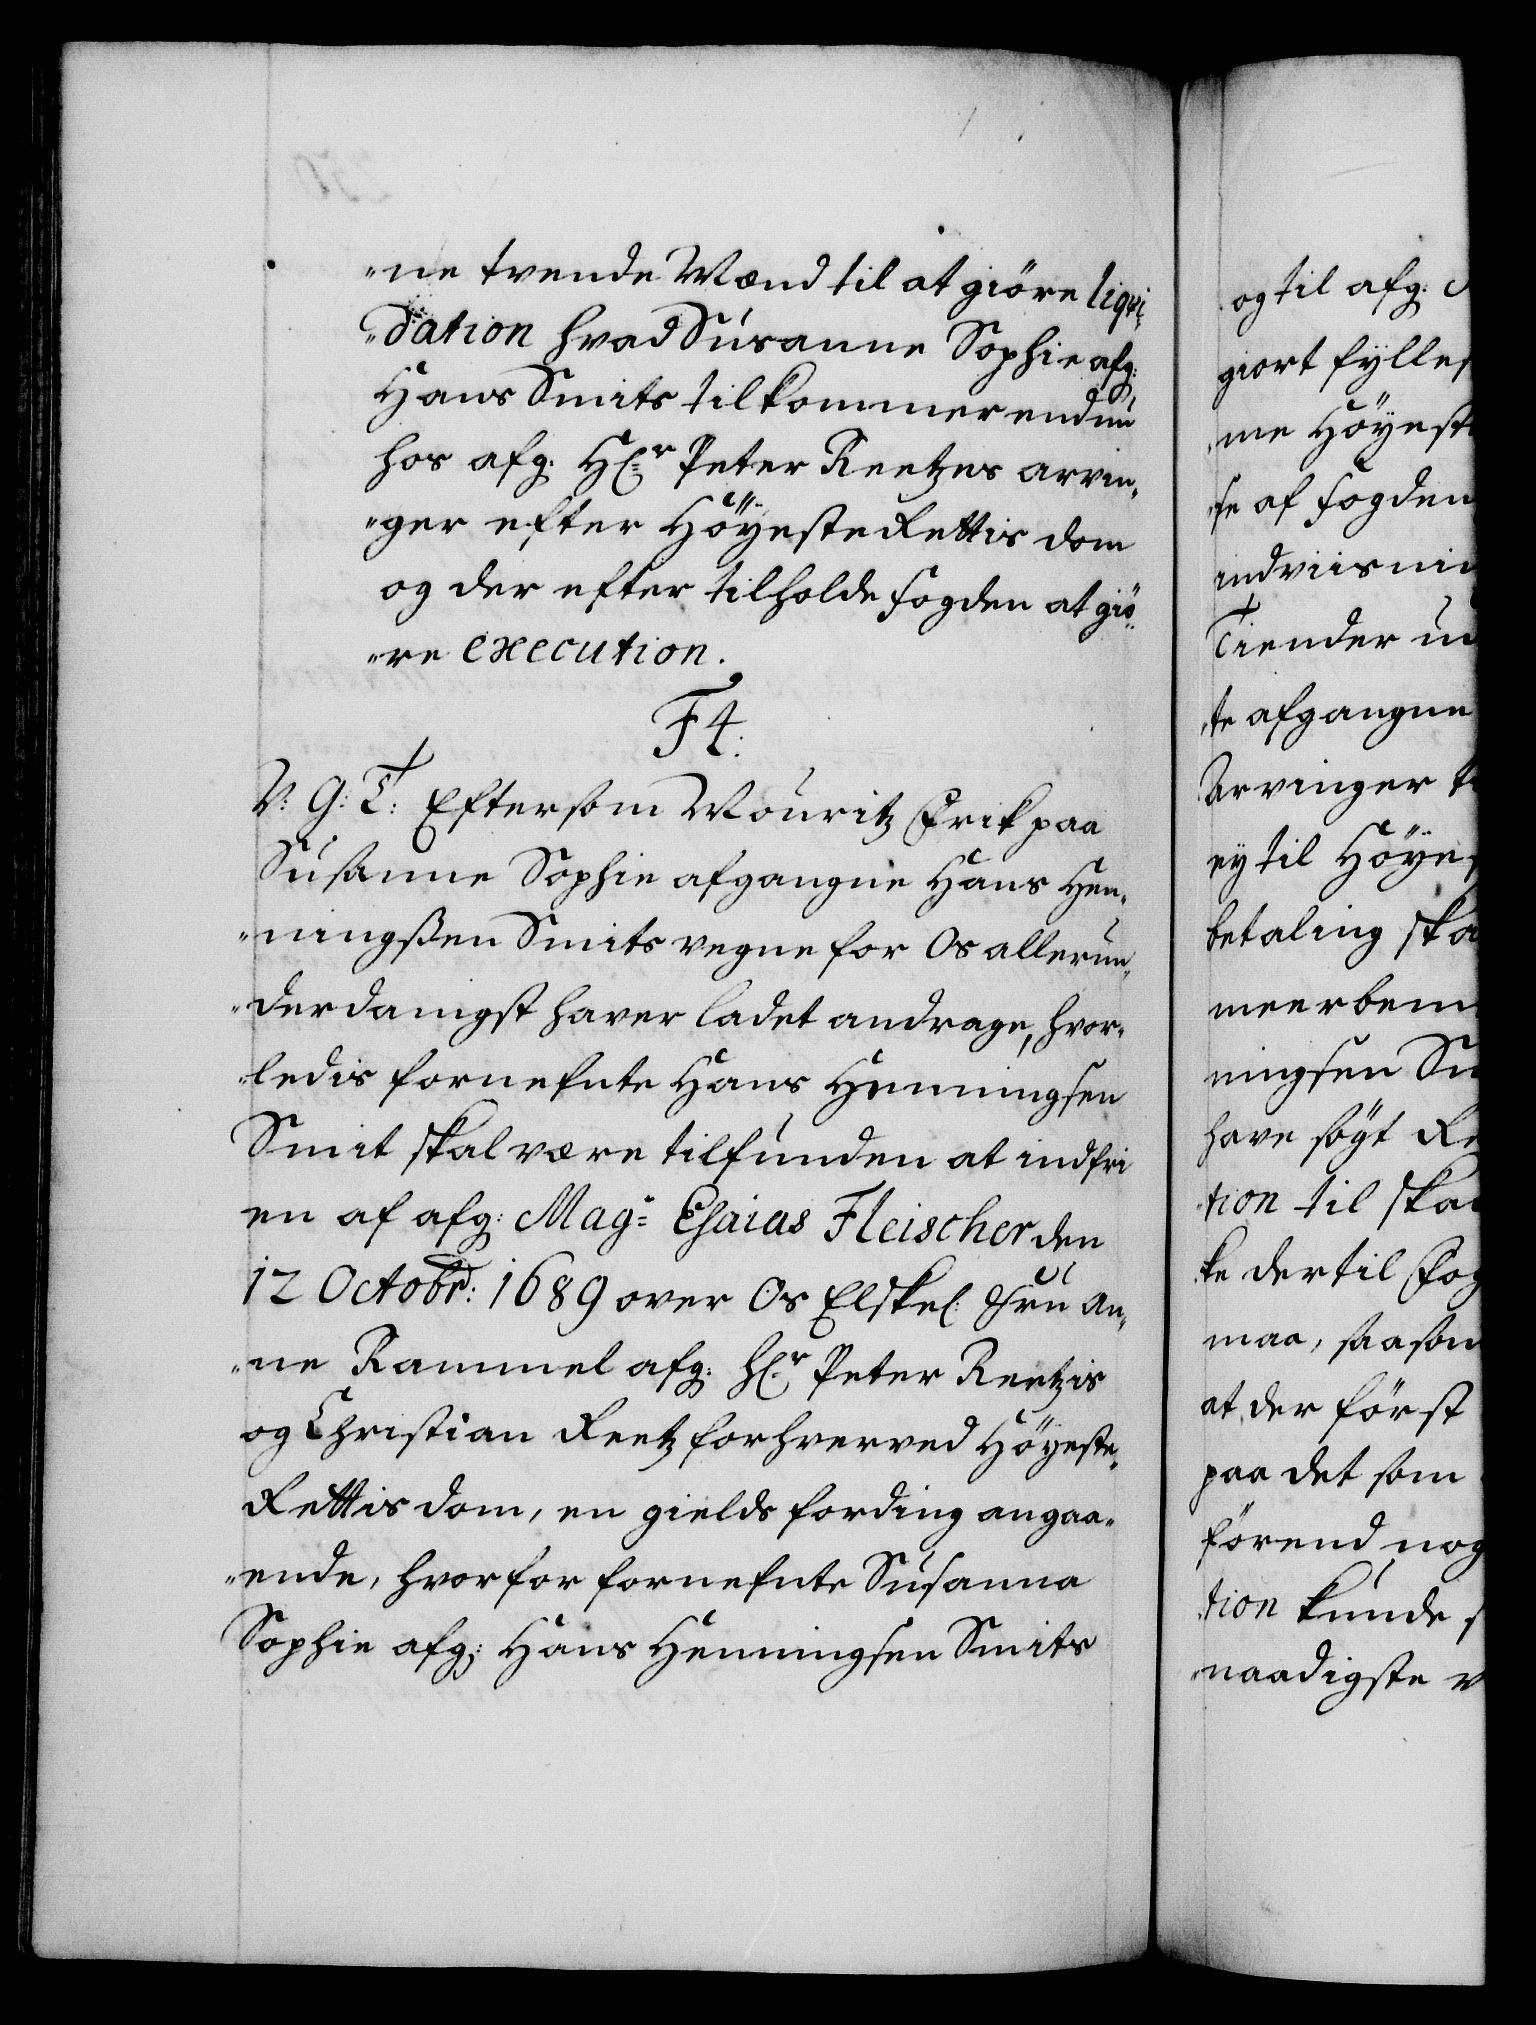 "ne tvende Mænd til at giöre liqvi-
"dation hvad Susanne Sophie afg:
Hans Smits tilkommer endnu
hos afg: H:r Peter Reetzes arvin-
"ger efter Höyeste Rettis dom
og der efter tilholde fogden at giö-
"re execution.
F 4:
V: G: T: Eftersom Mouritz Erik paa
Susanne Sophie afgangne Hans Hen-
"ningßen Smits vegne for Os allerun-
"derdanigst haver ladet andrage, hvor-
"ledis fornefnte Hans Henningsen
Smit skal være tilfunden at indfri
en af afg: Mag: Esaias Fleischer den
12 Octobr: 1689 over Os Elskel: Fru An-
"ne Rammel afg: H:r Peter Reetzis
og Christian Reetz forhverved Höyeste-
Rettis dom, en gields fording angaa-
"ende, hvorfor fornefnte Susanna
Sophie afg: Hans Henningsen Smits
og til afg:
giort fylles
"me Höyest
"se af fogden
indviisnin
Tiender u
"te afgangne
Arvinger
ey til Höyes
betaling ska
meerbem
ningsen Sm
have sögt Re
"tion til ska
"ke dertil Fog
maa, saasom
at der först
paa det som
förend nog
"tion kunde s
"naadigste v